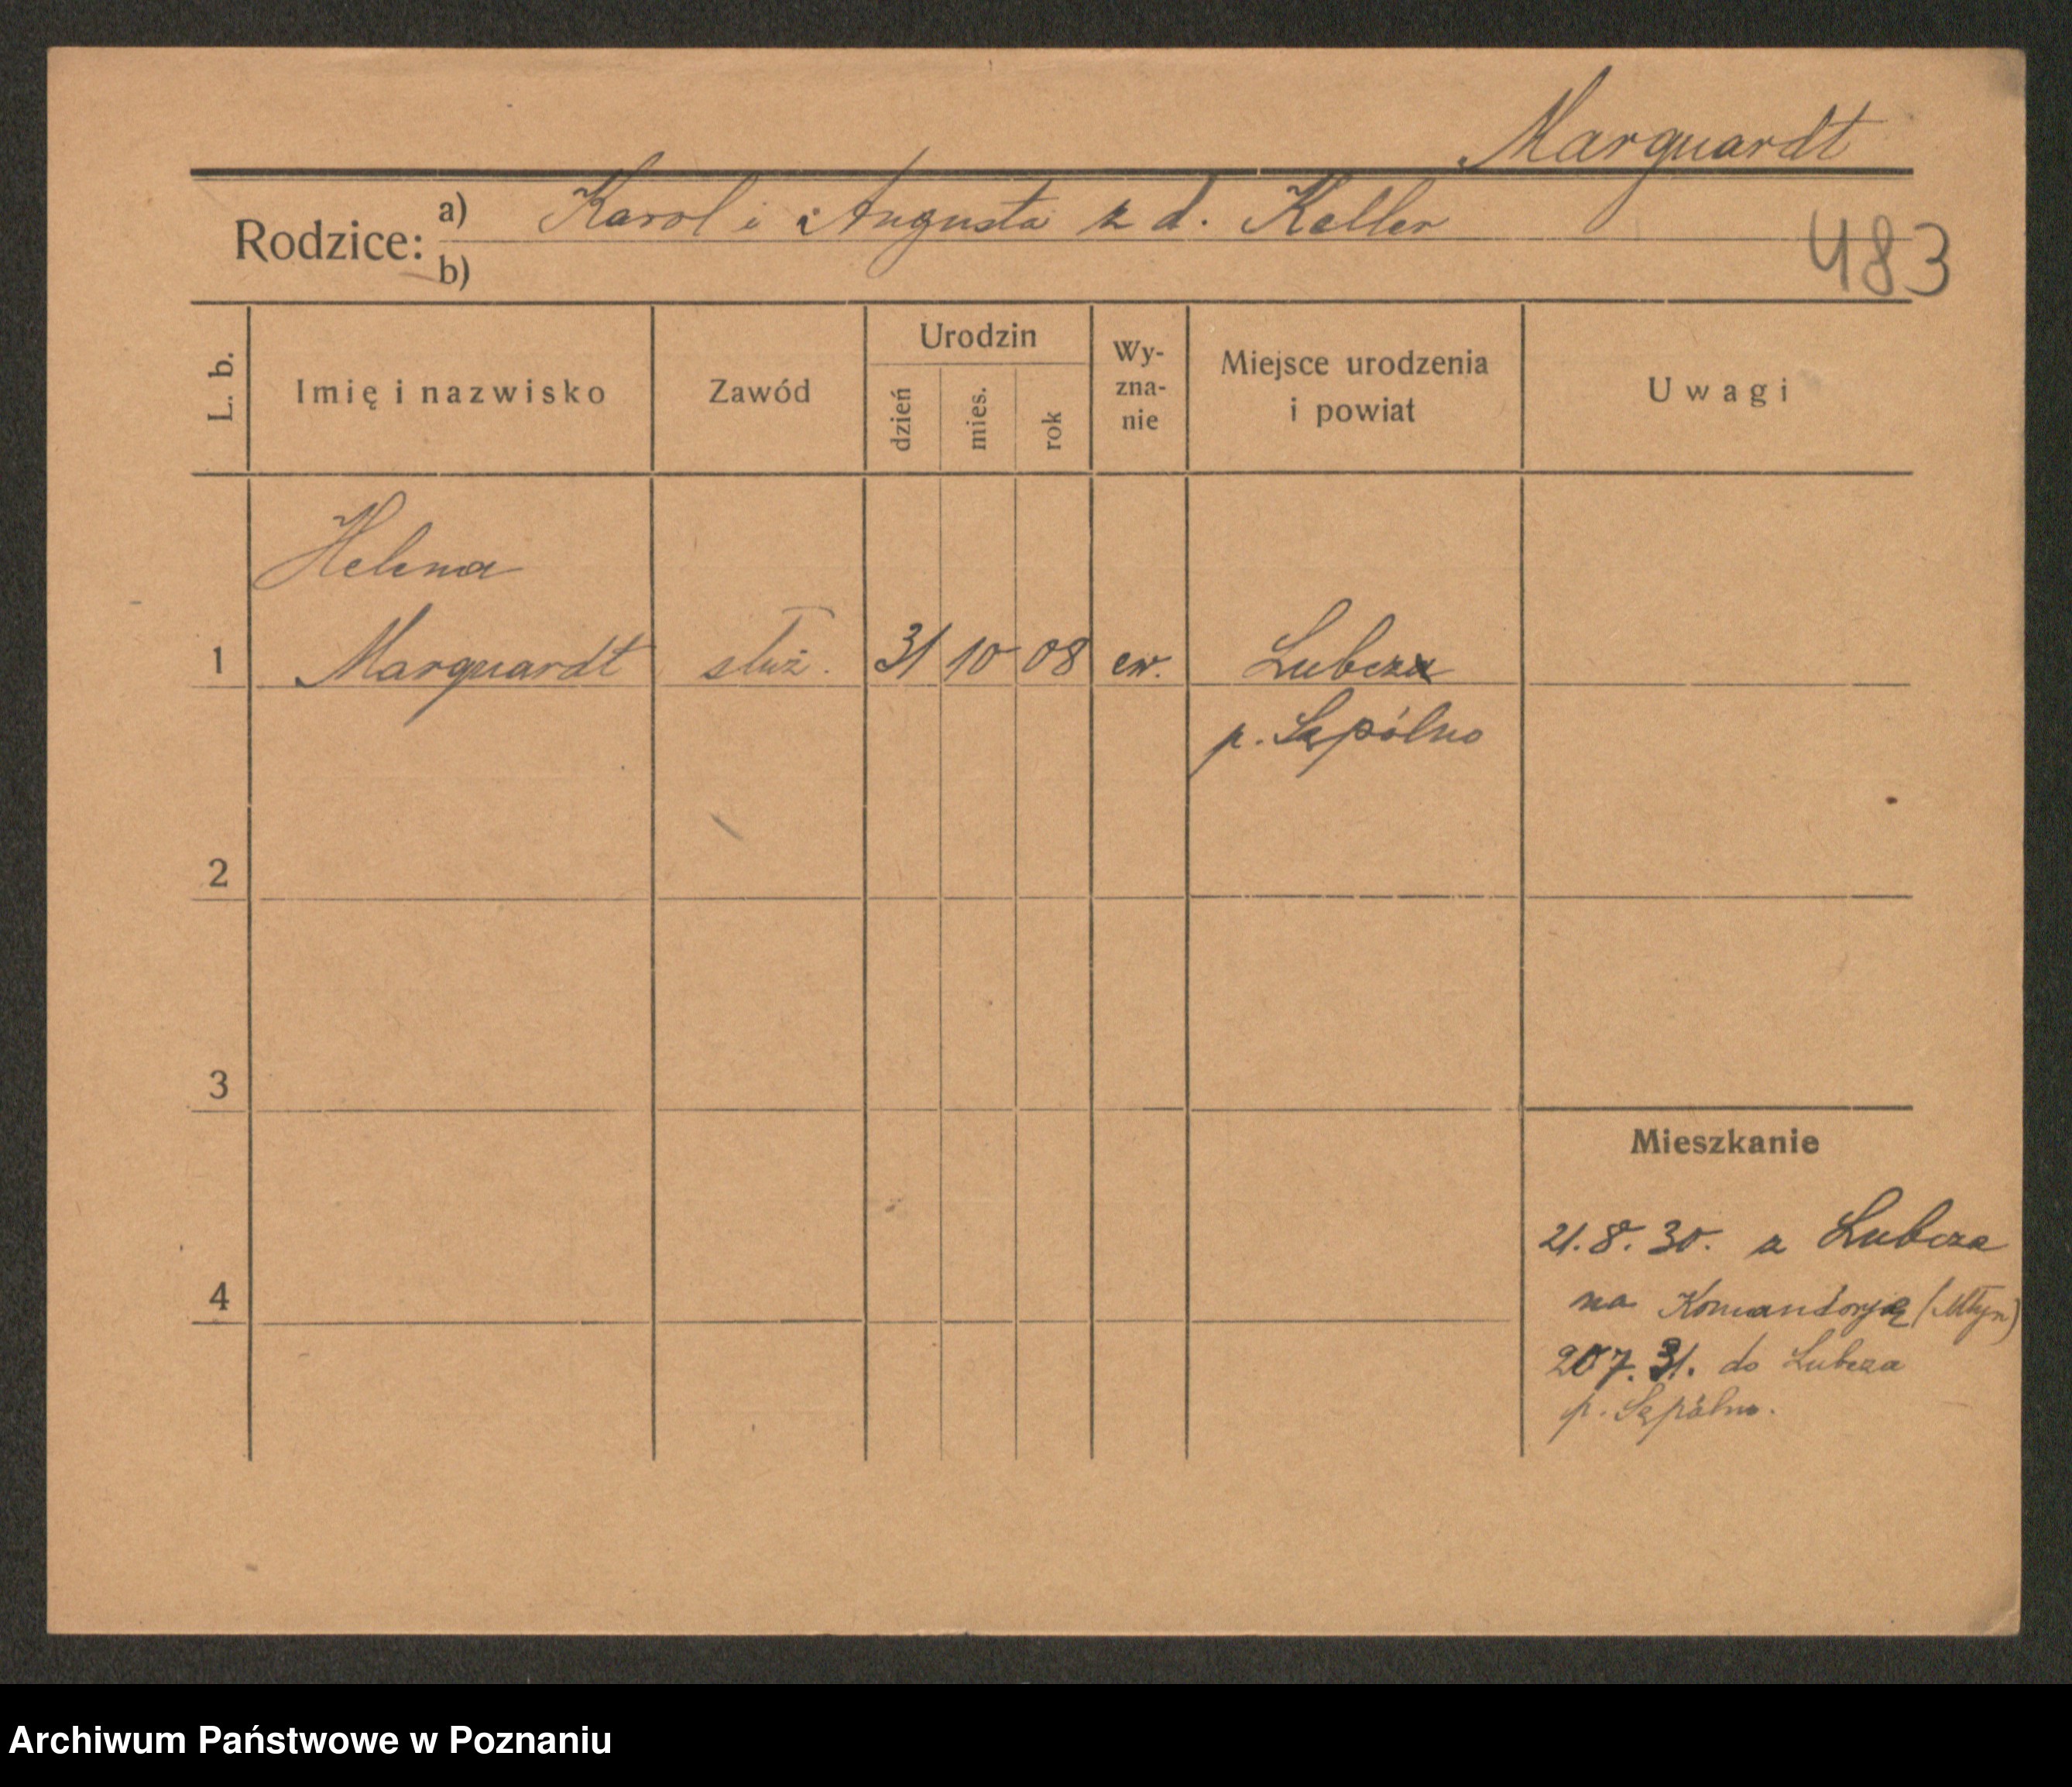 Marquardt
Rodzice: a) Karol i Augusta z d. Keller
483
b)
L. b.
Imię i nazwisko
Zawód
Urodzin
dzień
mies.
rok
Wy-
zna-
nie
Miejsce urodzenia
i powiat
Uwagi
Helena
1 Marquardt służ. 31 10 08 ew. Lubcza
p. Sępólno
2
3
Mieszkanie
4
21.8.30. z Lubcza
na Komandorję (Młyn)
207.31. do Lubcza
p. Sępólno.
Archiwum Państwowe w Poznaniu